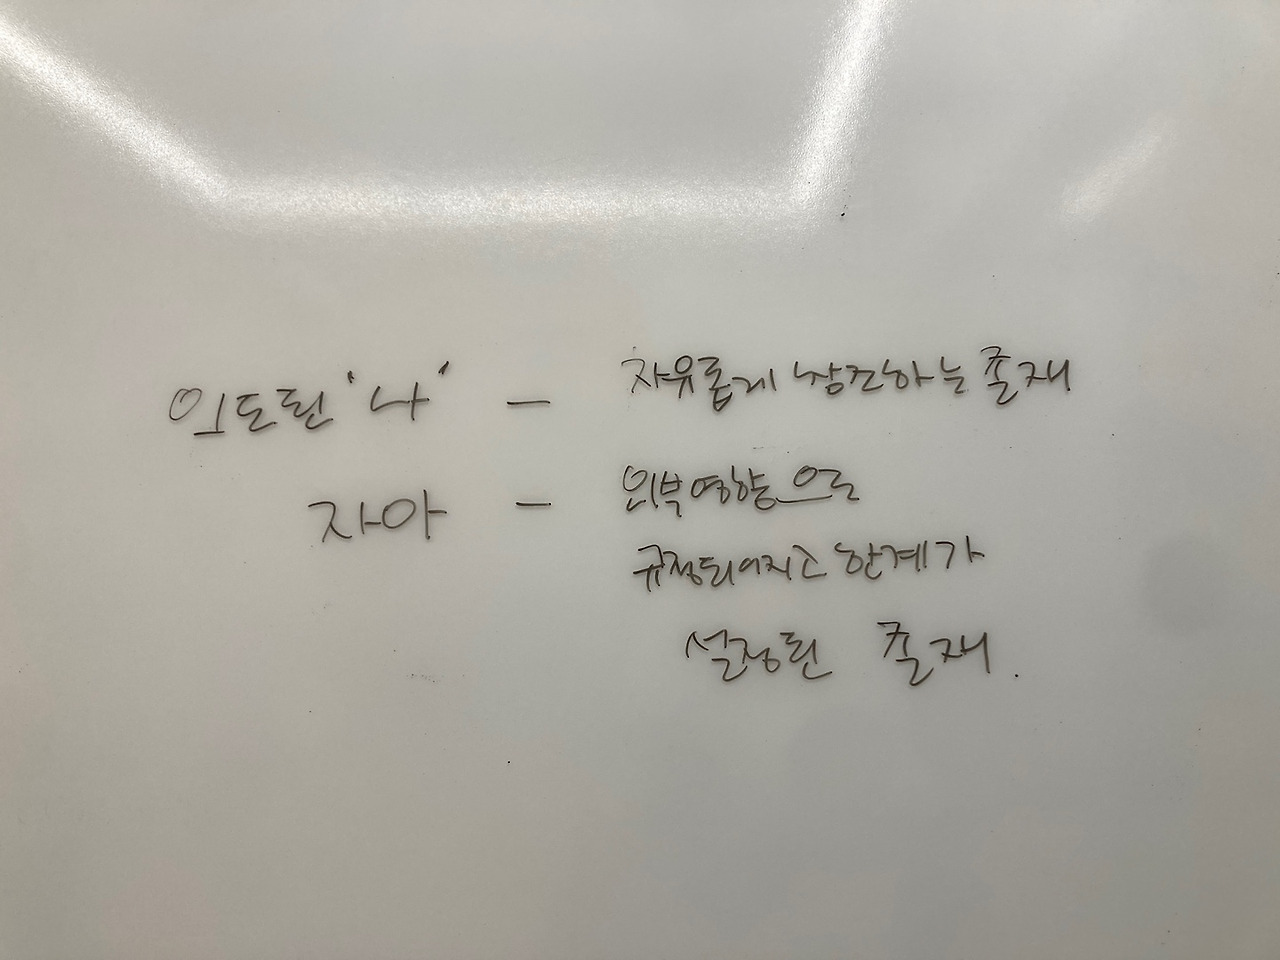 의도된 '나' - 자유롭게 창조하는 존재
자아 - 외부영향으로
규정되어지고 한계가
설정된 존재.